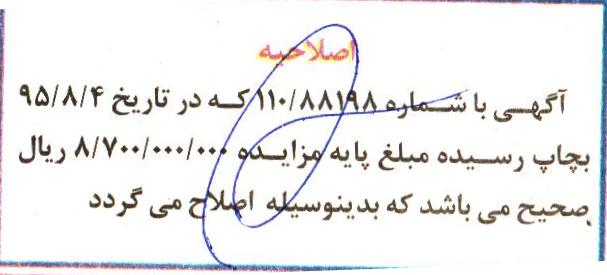 اصلاحیه
آگهـی با شـماره ۱۱۰/۸۸۱۹۸ کـه در تاریخ ۹۵/۸/۴
بچاپ رسـیده مبلغ پایه مزایـده ۸/۷۰۰/۰۰۰/۰۰۰ ریال
صحیح می باشد که بدینوسیله اصلاح می گردد